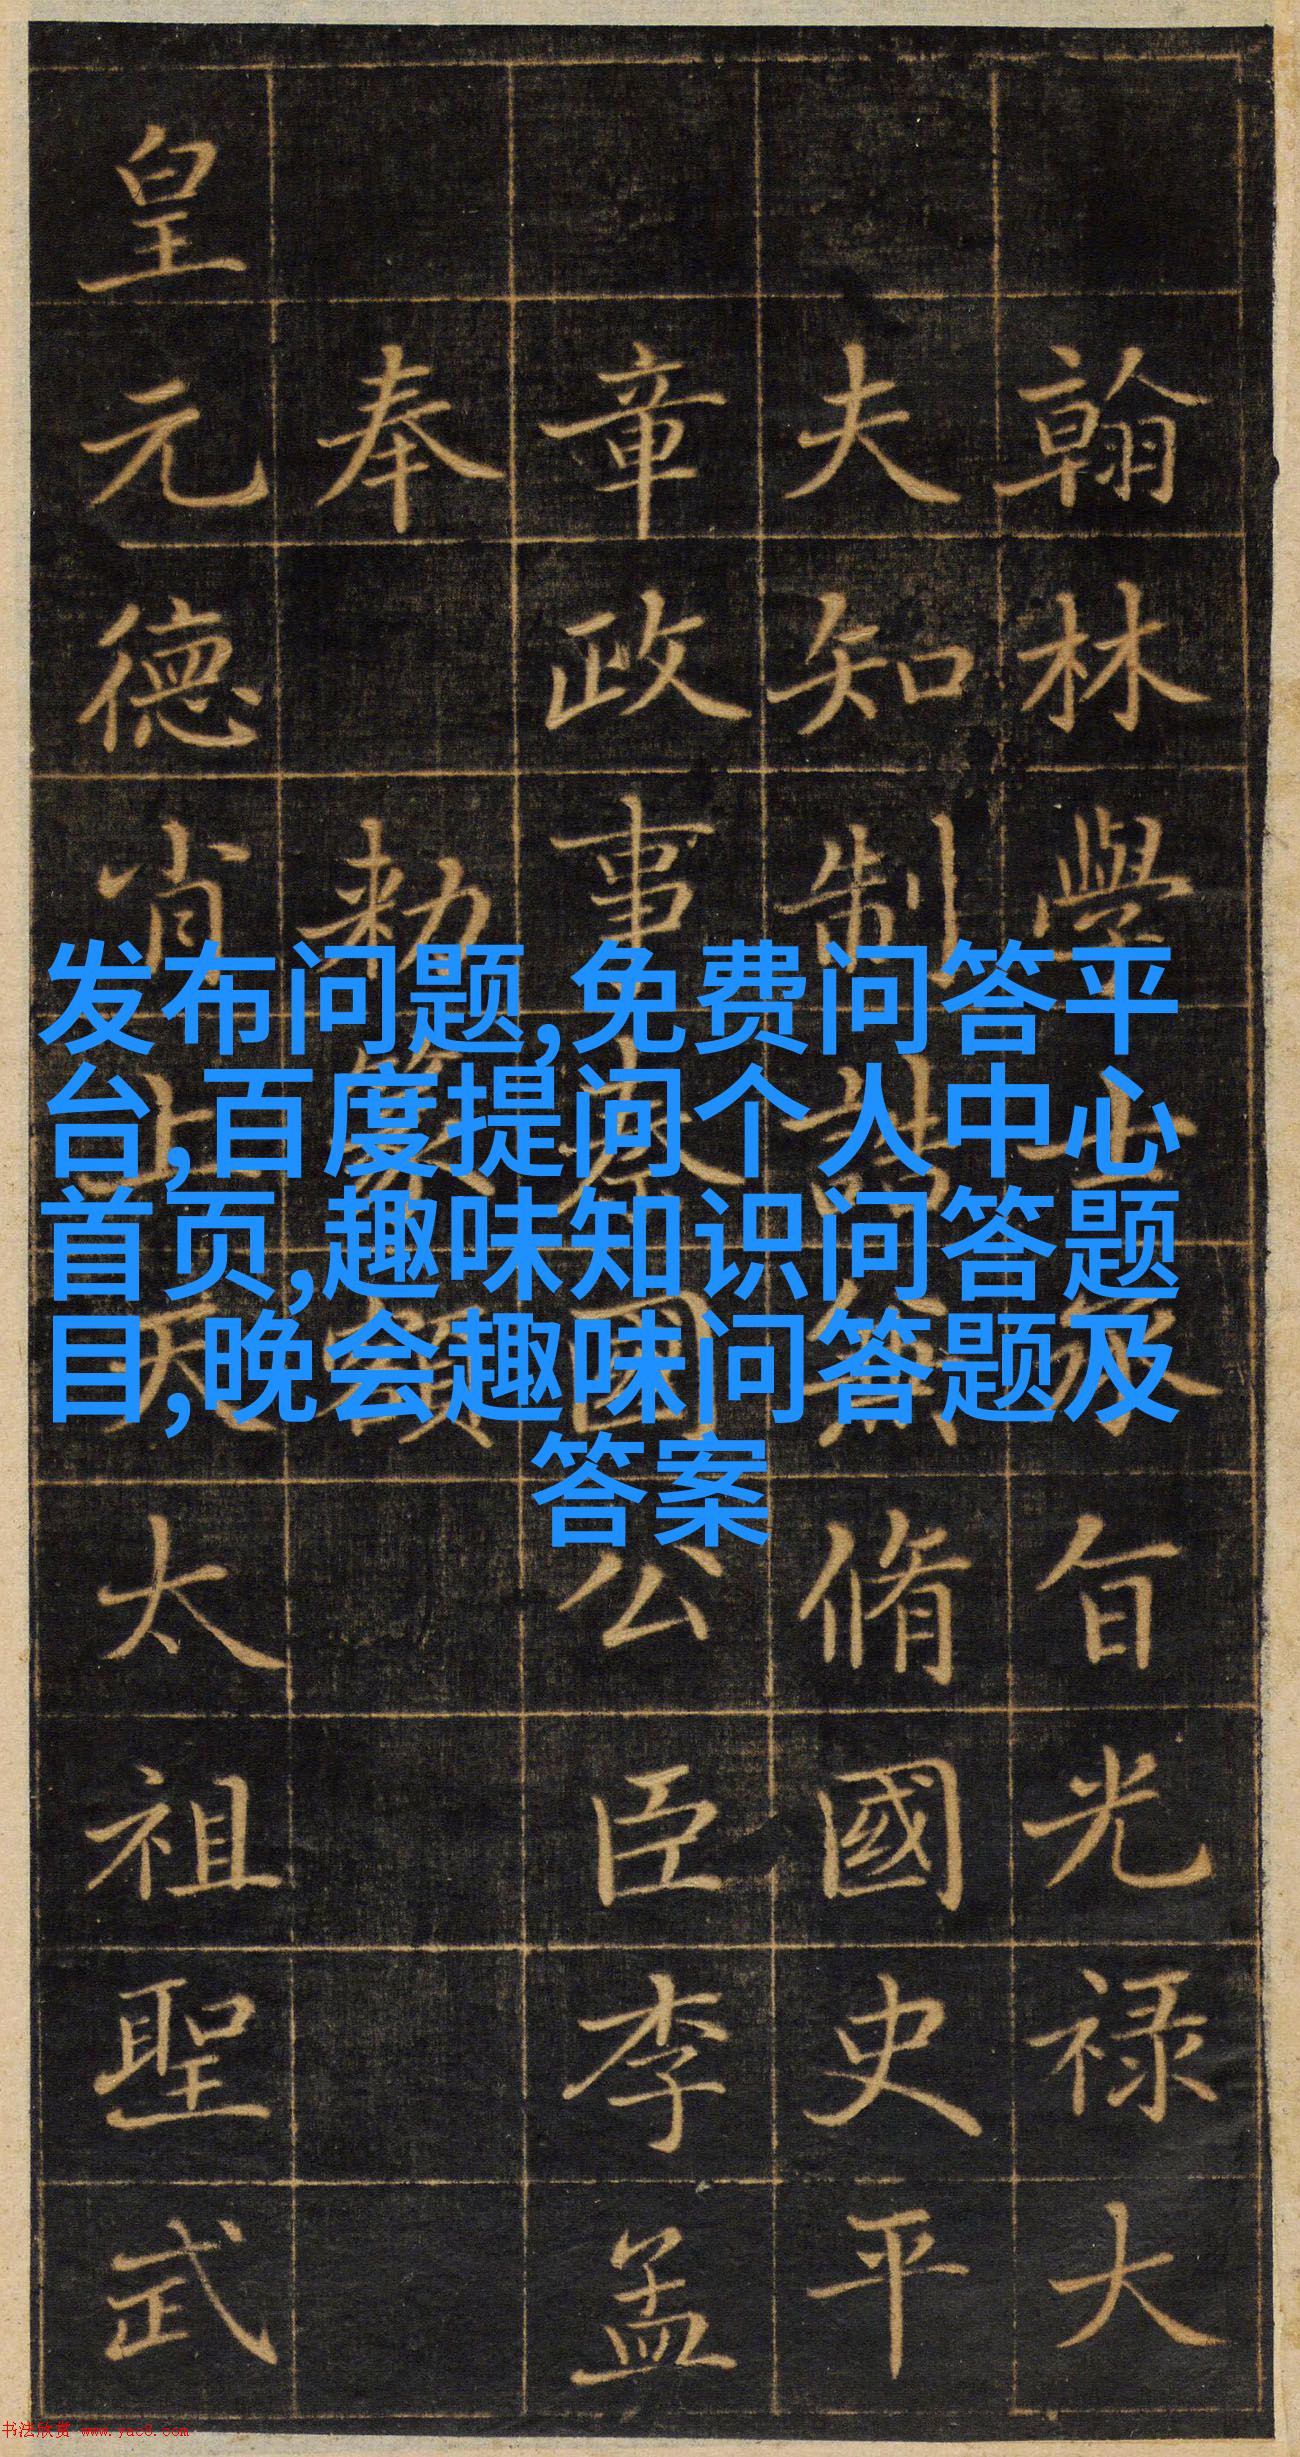 翰林學士承旨光禄大
夫知制誥兼脩國史平
章政事秦國公臣李孟
奉 勑篆額
皇元德肖上天太祖聖武
发布问题,免费问答平
台,百度提问个人中心
首页,趣味知识问答题
目,晚会趣味问答题及
答案
书法欣赏 www.yac8.com